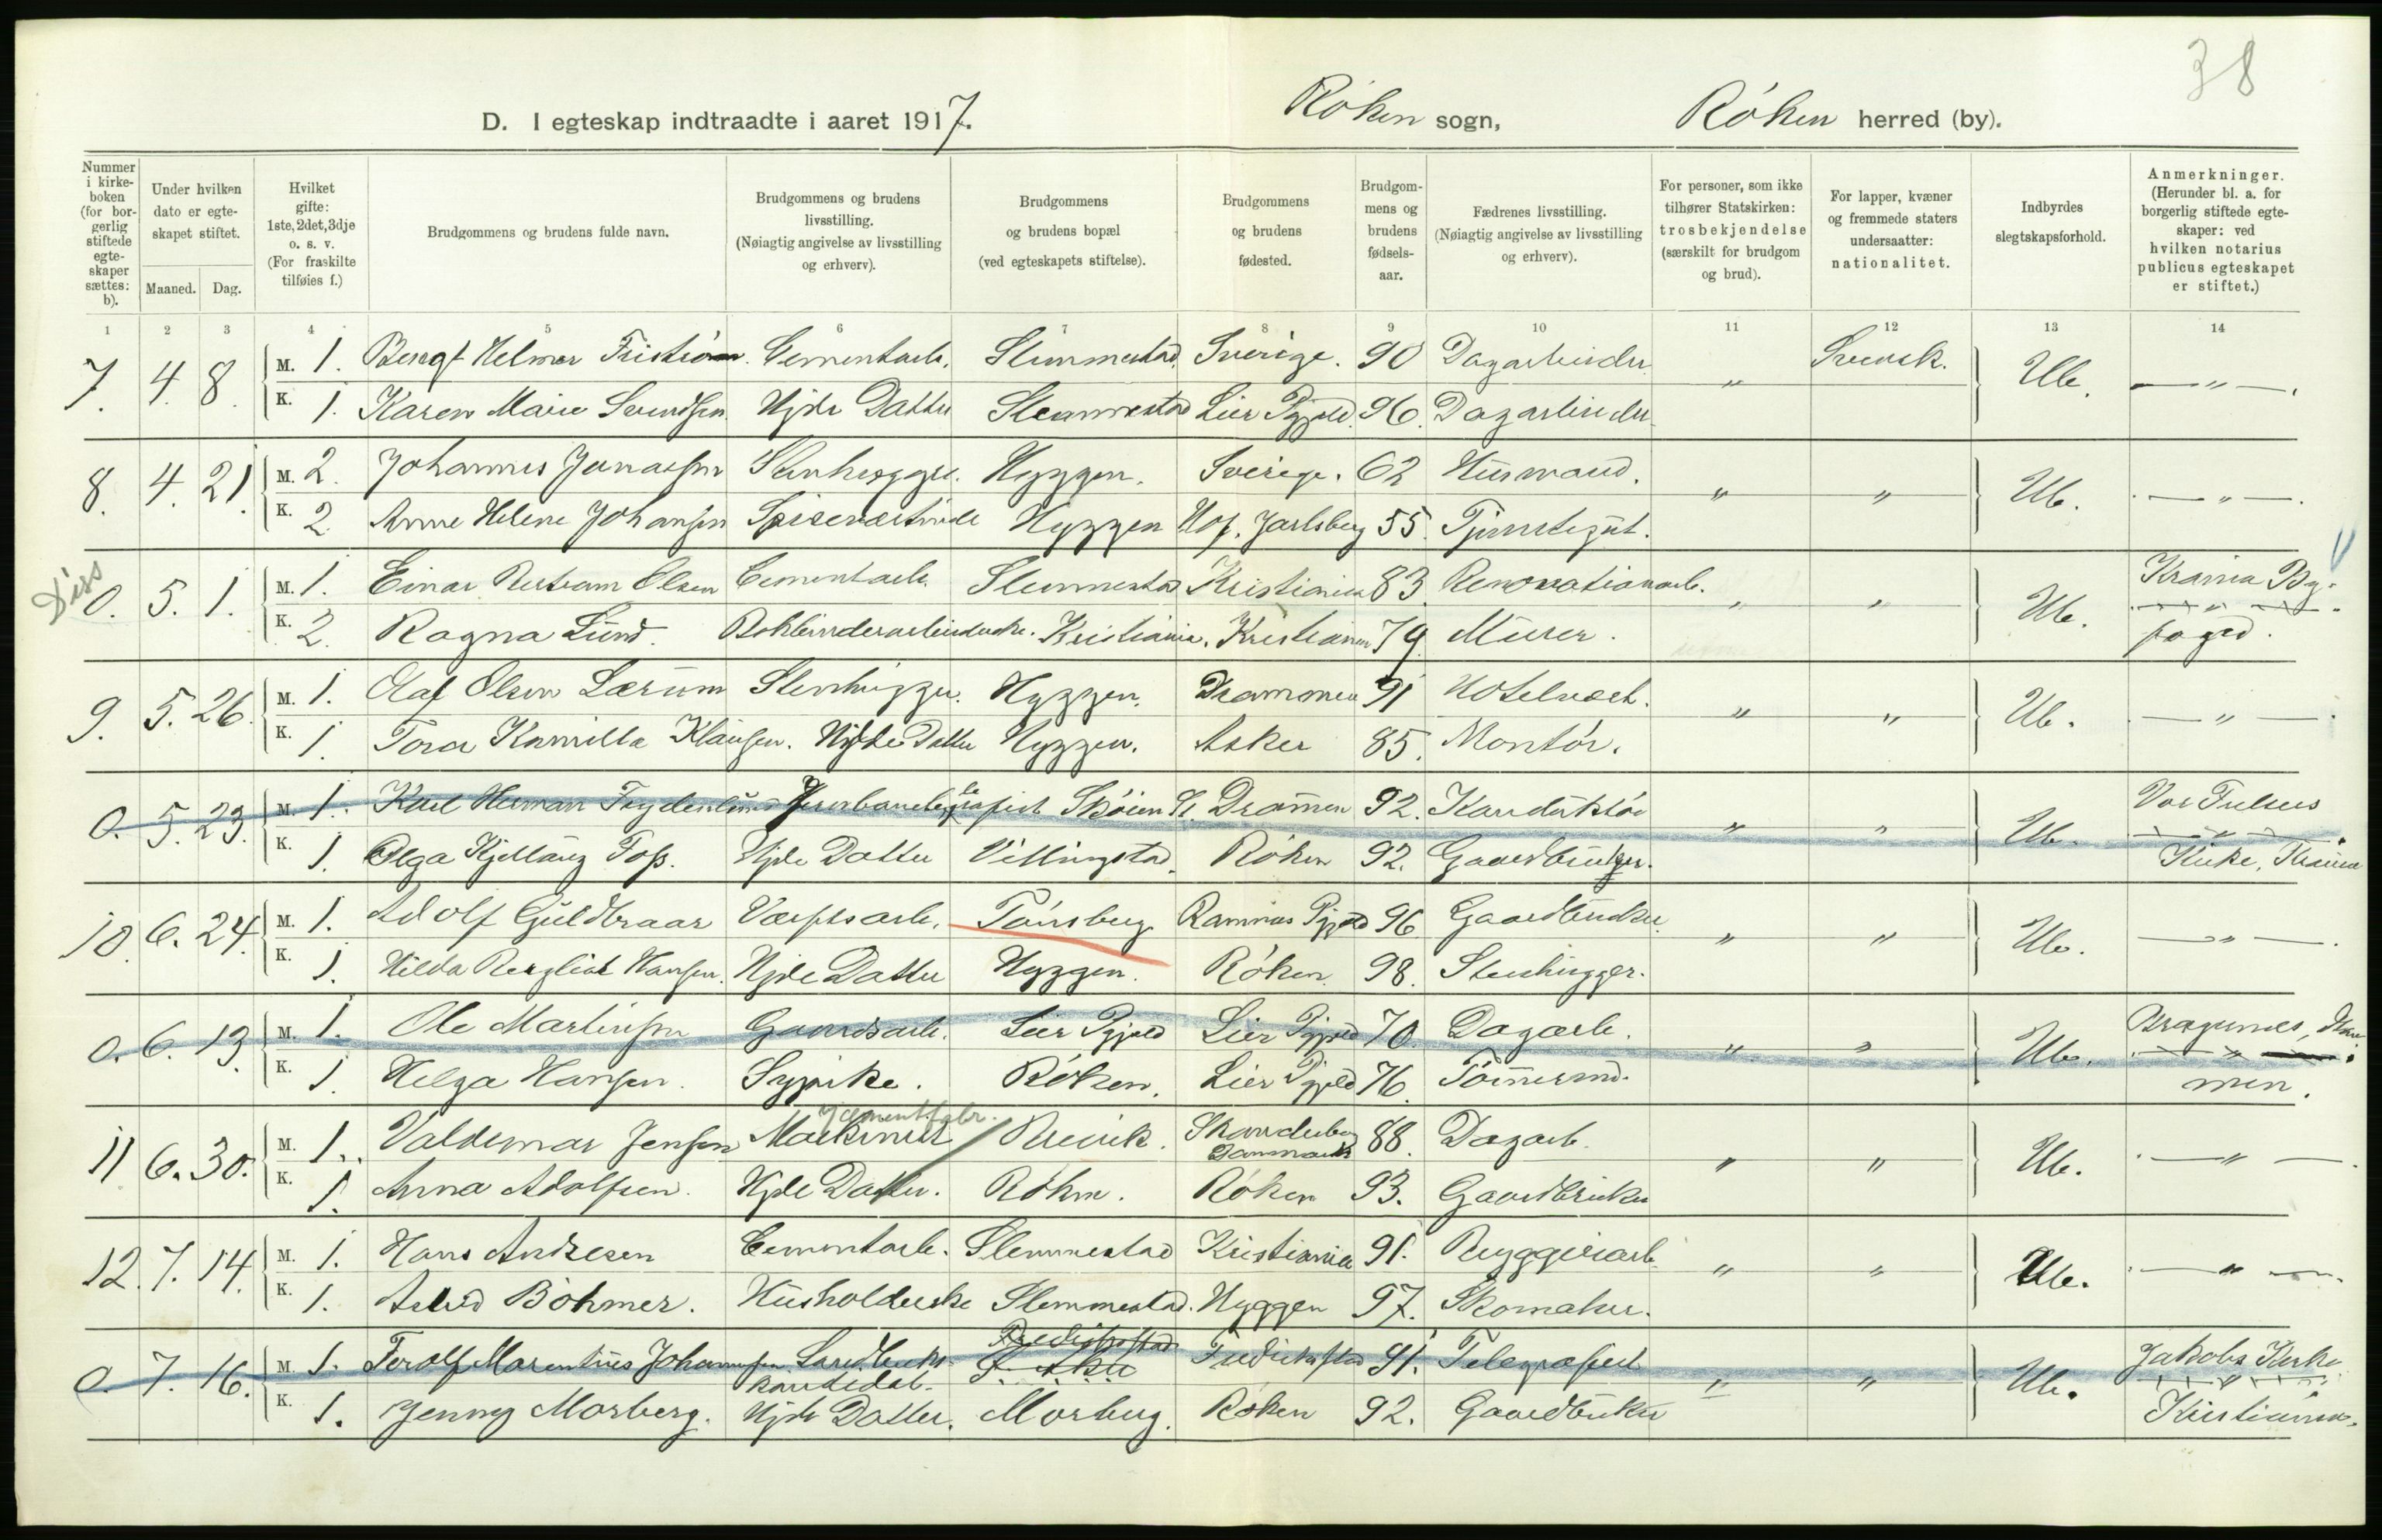 38
D. I egteskap indtraadte i aaret 1917. Røken sogn, Røken herred (by).
Nummer i kirke-boken (for bor-gerlig stiftede egte-skaper sættes: b).
Under hvilken dato er egte-skapet stiftet.
Maaned. Dag.
Hvilket gifte: 1ste, 2det, 3dje o. s. v. (For fraskilte tilføies f.)
Brudgommens og brudens fulde navn.
Brudgommens og brudens livsstilling. (Nøiagtig angivelse av livsstilling og erhverv).
Brudgommens og brudens bopæl (ved egteskapets stiftelse).
Brudgommens og brudens fødested.
Brudgom-mens og brudens fødsels-aar.
Fædrenes livsstilling. (Nøiagtig angivelse av livsstilling og erhverv).
For personer, som ikke tilhører Statskirken: trosbekjendelse (særskilt for brudgom og brud).
For lapper, kvæner og fremmede staters undersaatter: nationalitet.
Indbyrdes slegtskapsforhold.
Anmerkninger. (Herunder bl. a. for borgerlig stiftede egte-skaper: ved hvilken notarius publicus egteskapet er stiftet.)
1 2 3 4 5 6 7 8 9 10 11 12 13 14
7. 4. 8. M. 1. Bengt Helmer Cementarb. Slemmestad. Sverige. 90 Dagarbeider " Svensk. Ub. — " —.
K. 1. Karen Marie Svendsen Hjde Datter Slemmestad Lier Pgjeld. 96. Dagarbeider
8. 4. 21. M. 2. Johannes Jonassen Stenhugger. Hyggen. Sverige. 62 Husmand. " " Ub. — " —.
K. 2. Anne Helene Johansen Spisevertinde Hyggen Hof. Jarlsberg 55. Tjenstegut.
Diss
0. 5. 1. M. 1. Einar Olsen Cementarb. Slemmestad Kristiania 83 Renovationarb. " " Ub. Krania By-
K. 2. Ragna Lund. Bokbinderarbeiderske. Kristiania. Kristiania 79 Murer. foged.
9. 5. 26. M. 1. Olaf Olsen Lærum Stenhugger. Hyggen. Drammen 91 Hotelvert. " " Ub. — " —.
K. 1. Tora Kamilla Klausen. Hjde Datter Hyggen. Asker 85. Montør.
0. 5. 23. M. 1. Karl Herman Frydenlund Skøien St. Drammen 92. Konduktør " " Ub. Vor Frelsers
K. 1. Olga Foss. Hjde Datter Villingstad. Røken 92. Gaardbruger. Kirke, Krania
10. 6. 24. M. 1. Adolf Guldbraar Værftsarb. Tønsberg Ramnes Pgjeld 96 Gaardbruker. " " Ub. — " —.
K. 1. Hilda Hansen. Hjde Datter Hyggen. Røken. 98. Stenhugger.
0. 6. 13. M. 1. Ole Martinsen Gaardsarb. Lier Pgjeld Lier Pgjeld 70. Dagarb. " " Ub. Bragernes, Dram
K. 1. Helga Hansen. Sypike. Røken. Lier Pgjeld 76. Tømmermd. men.
Jcementfabr.
11 6. 30. M. 1. Valdemar Jensen Maskinist Skanderborg Danmark 88. Dagarb. " " Ub. — " —.
K. 1. Anna Adolfsen. Hjde Datter. Røken. Røken 93. Gaardbruker
12. 7. 14. M. 1. Hans Andresen Cementarb. Slemmestad Kristiania 91. Bryggeriarb. " " Ub. — " —.
K. 1. Astrid Böhmer. Husholderske Slemmestad. Hyggen 97. Skomaker.
0. 7. 16. M. 1. Ferolf Marentius Johannesen Landbruks-kandidat. Fredrikstad Fredrikstad 91. Telegrafist " " Ub. Jakobs Kirke
K. 1. Jenny Morberg. Hjde Datter. Morberg. Røken 92. Gaardbruker Kristiania.